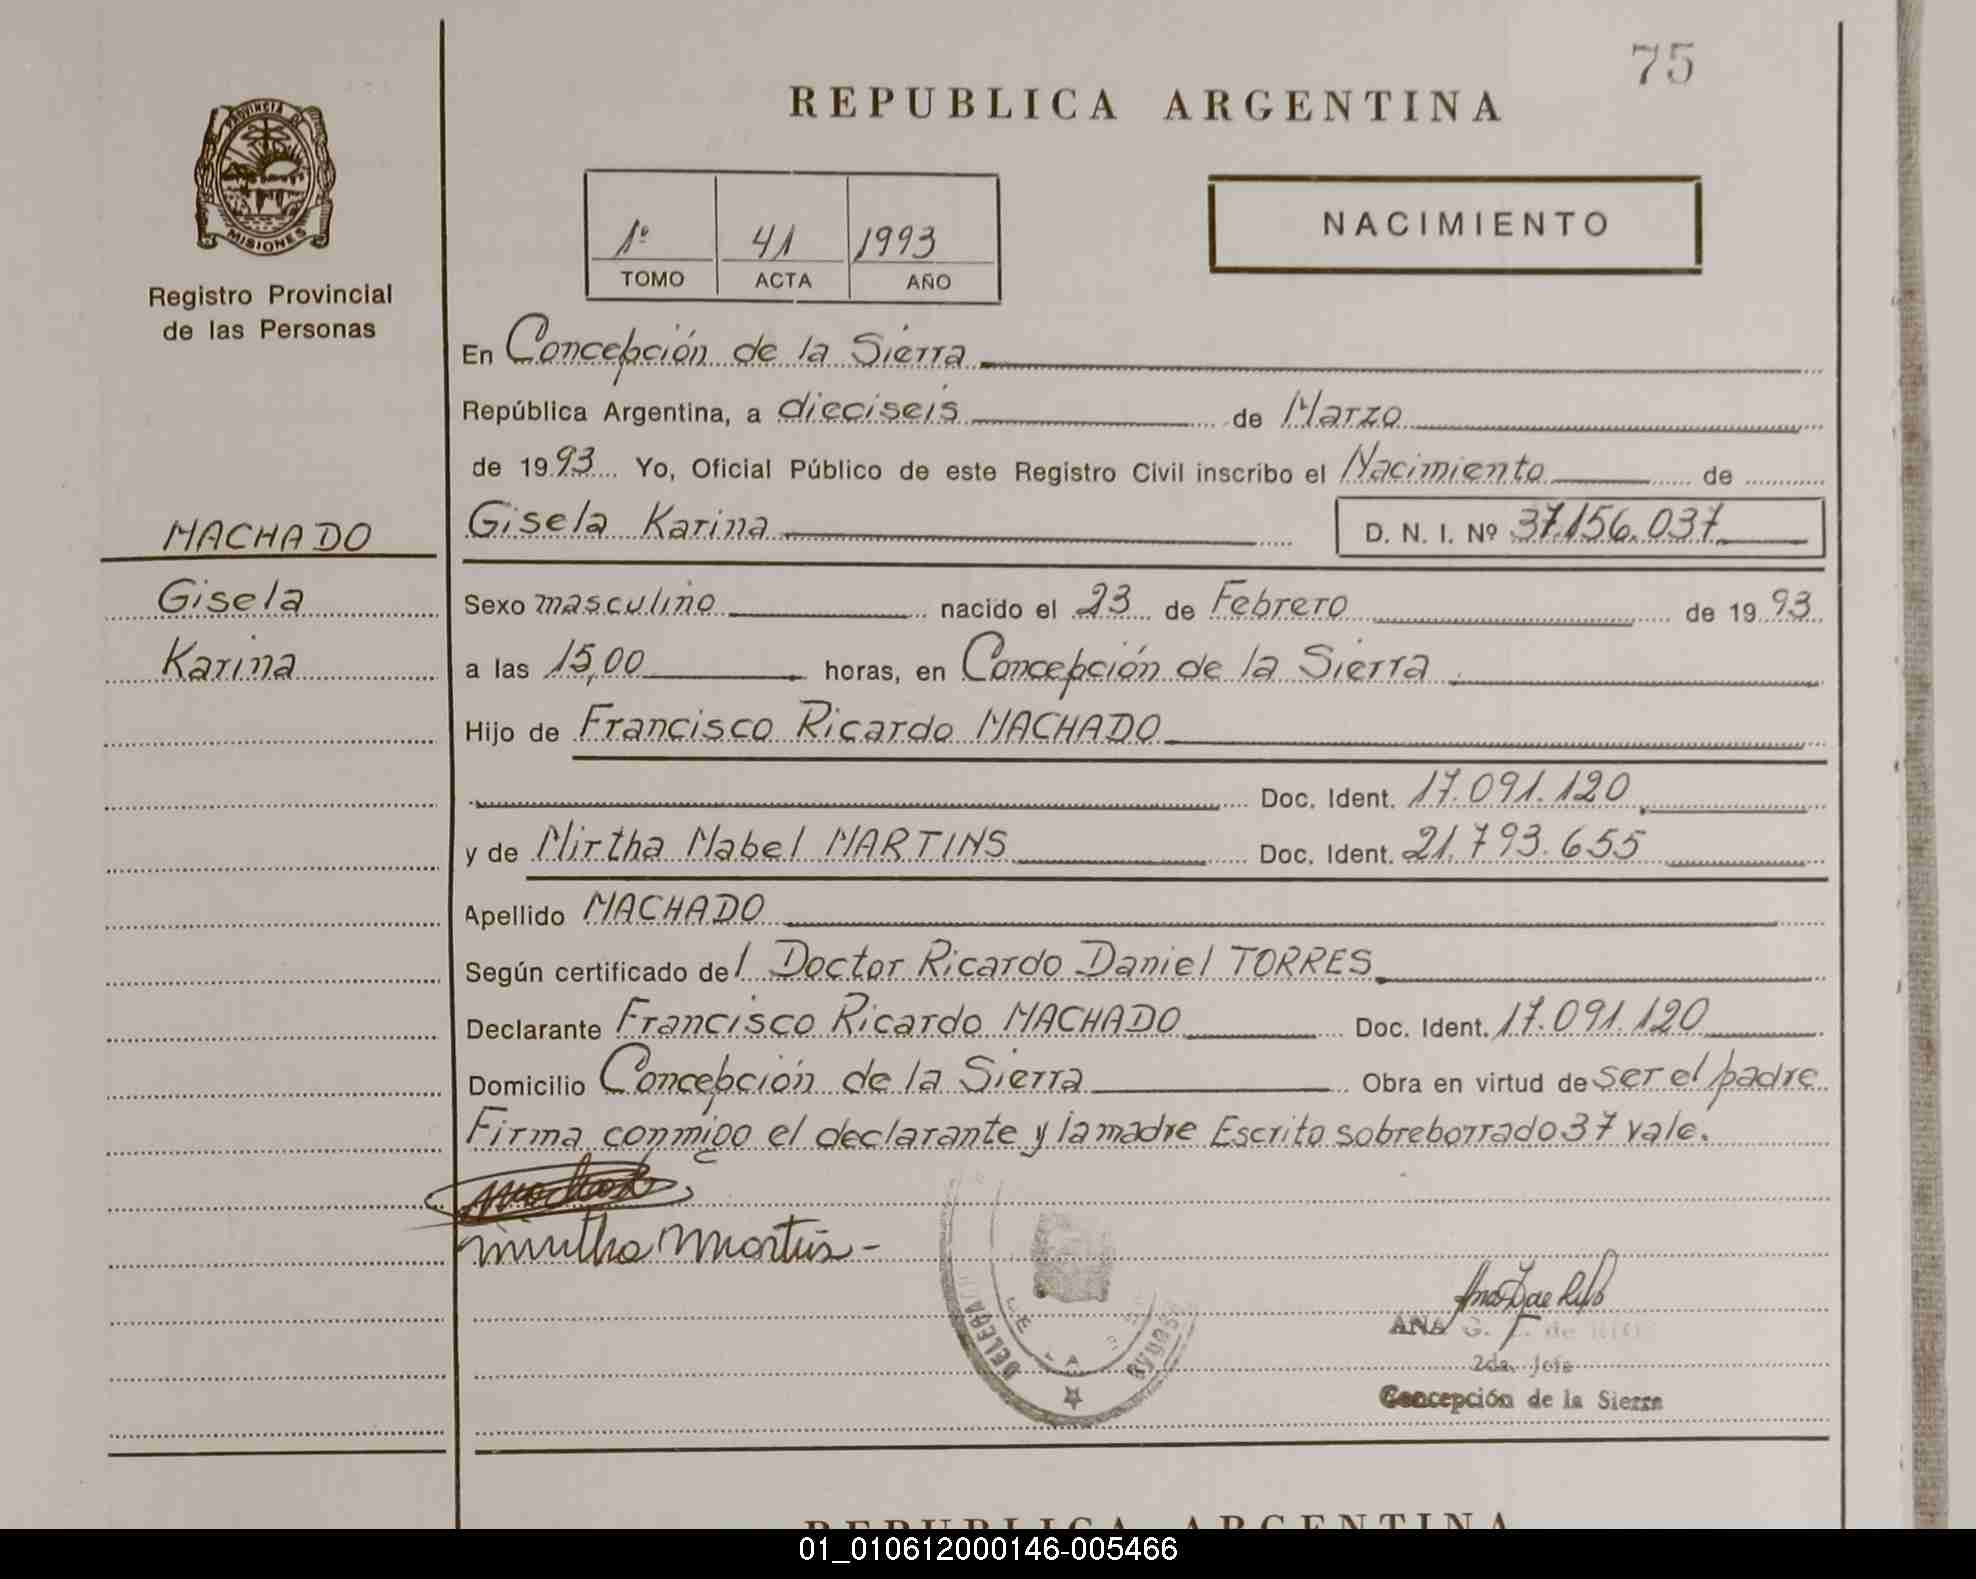 75
REPUBLICA ARGENTINA
PROVINCIA DE
MISIONES
Registro Provincial
de las Personas
1º 41 1993
TOMO ACTA AÑO
NACIMIENTO
En Concepción de la Sierra
República Argentina, a dieciseis de Marzo
de 1993 Yo, Oficial Público de este Registro Civil inscribo el Nacimiento de
Gisela Karina D. N. I. Nº 37.156.037
MACHADO
Gisela
Karina
Sexo masculino nacido el 23 de Febrero de 1993
a las 15,00 horas, en Concepción de la Sierra
Hijo de Francisco Ricardo MACHADO
Doc. Ident. 17.091.120
y de Mirtha Mabel MARTINS Doc. Ident. 21.793.655
Apellido MACHADO
Según certificado del Doctor Ricardo Daniel TORRES
Declarante Francisco Ricardo MACHADO Doc. Ident. 17.091.120
Domicilio Concepción de la Sierra Obra en virtud de ser el padre
Firma conmigo el declarante y la madre Escrito sobreborrado 37 vale.
Mirtha Martins -
ANA G.
2da. Jefe
Concepción de la Sierra
REPUBLICA ARGENTINA
01_010612000146-005466